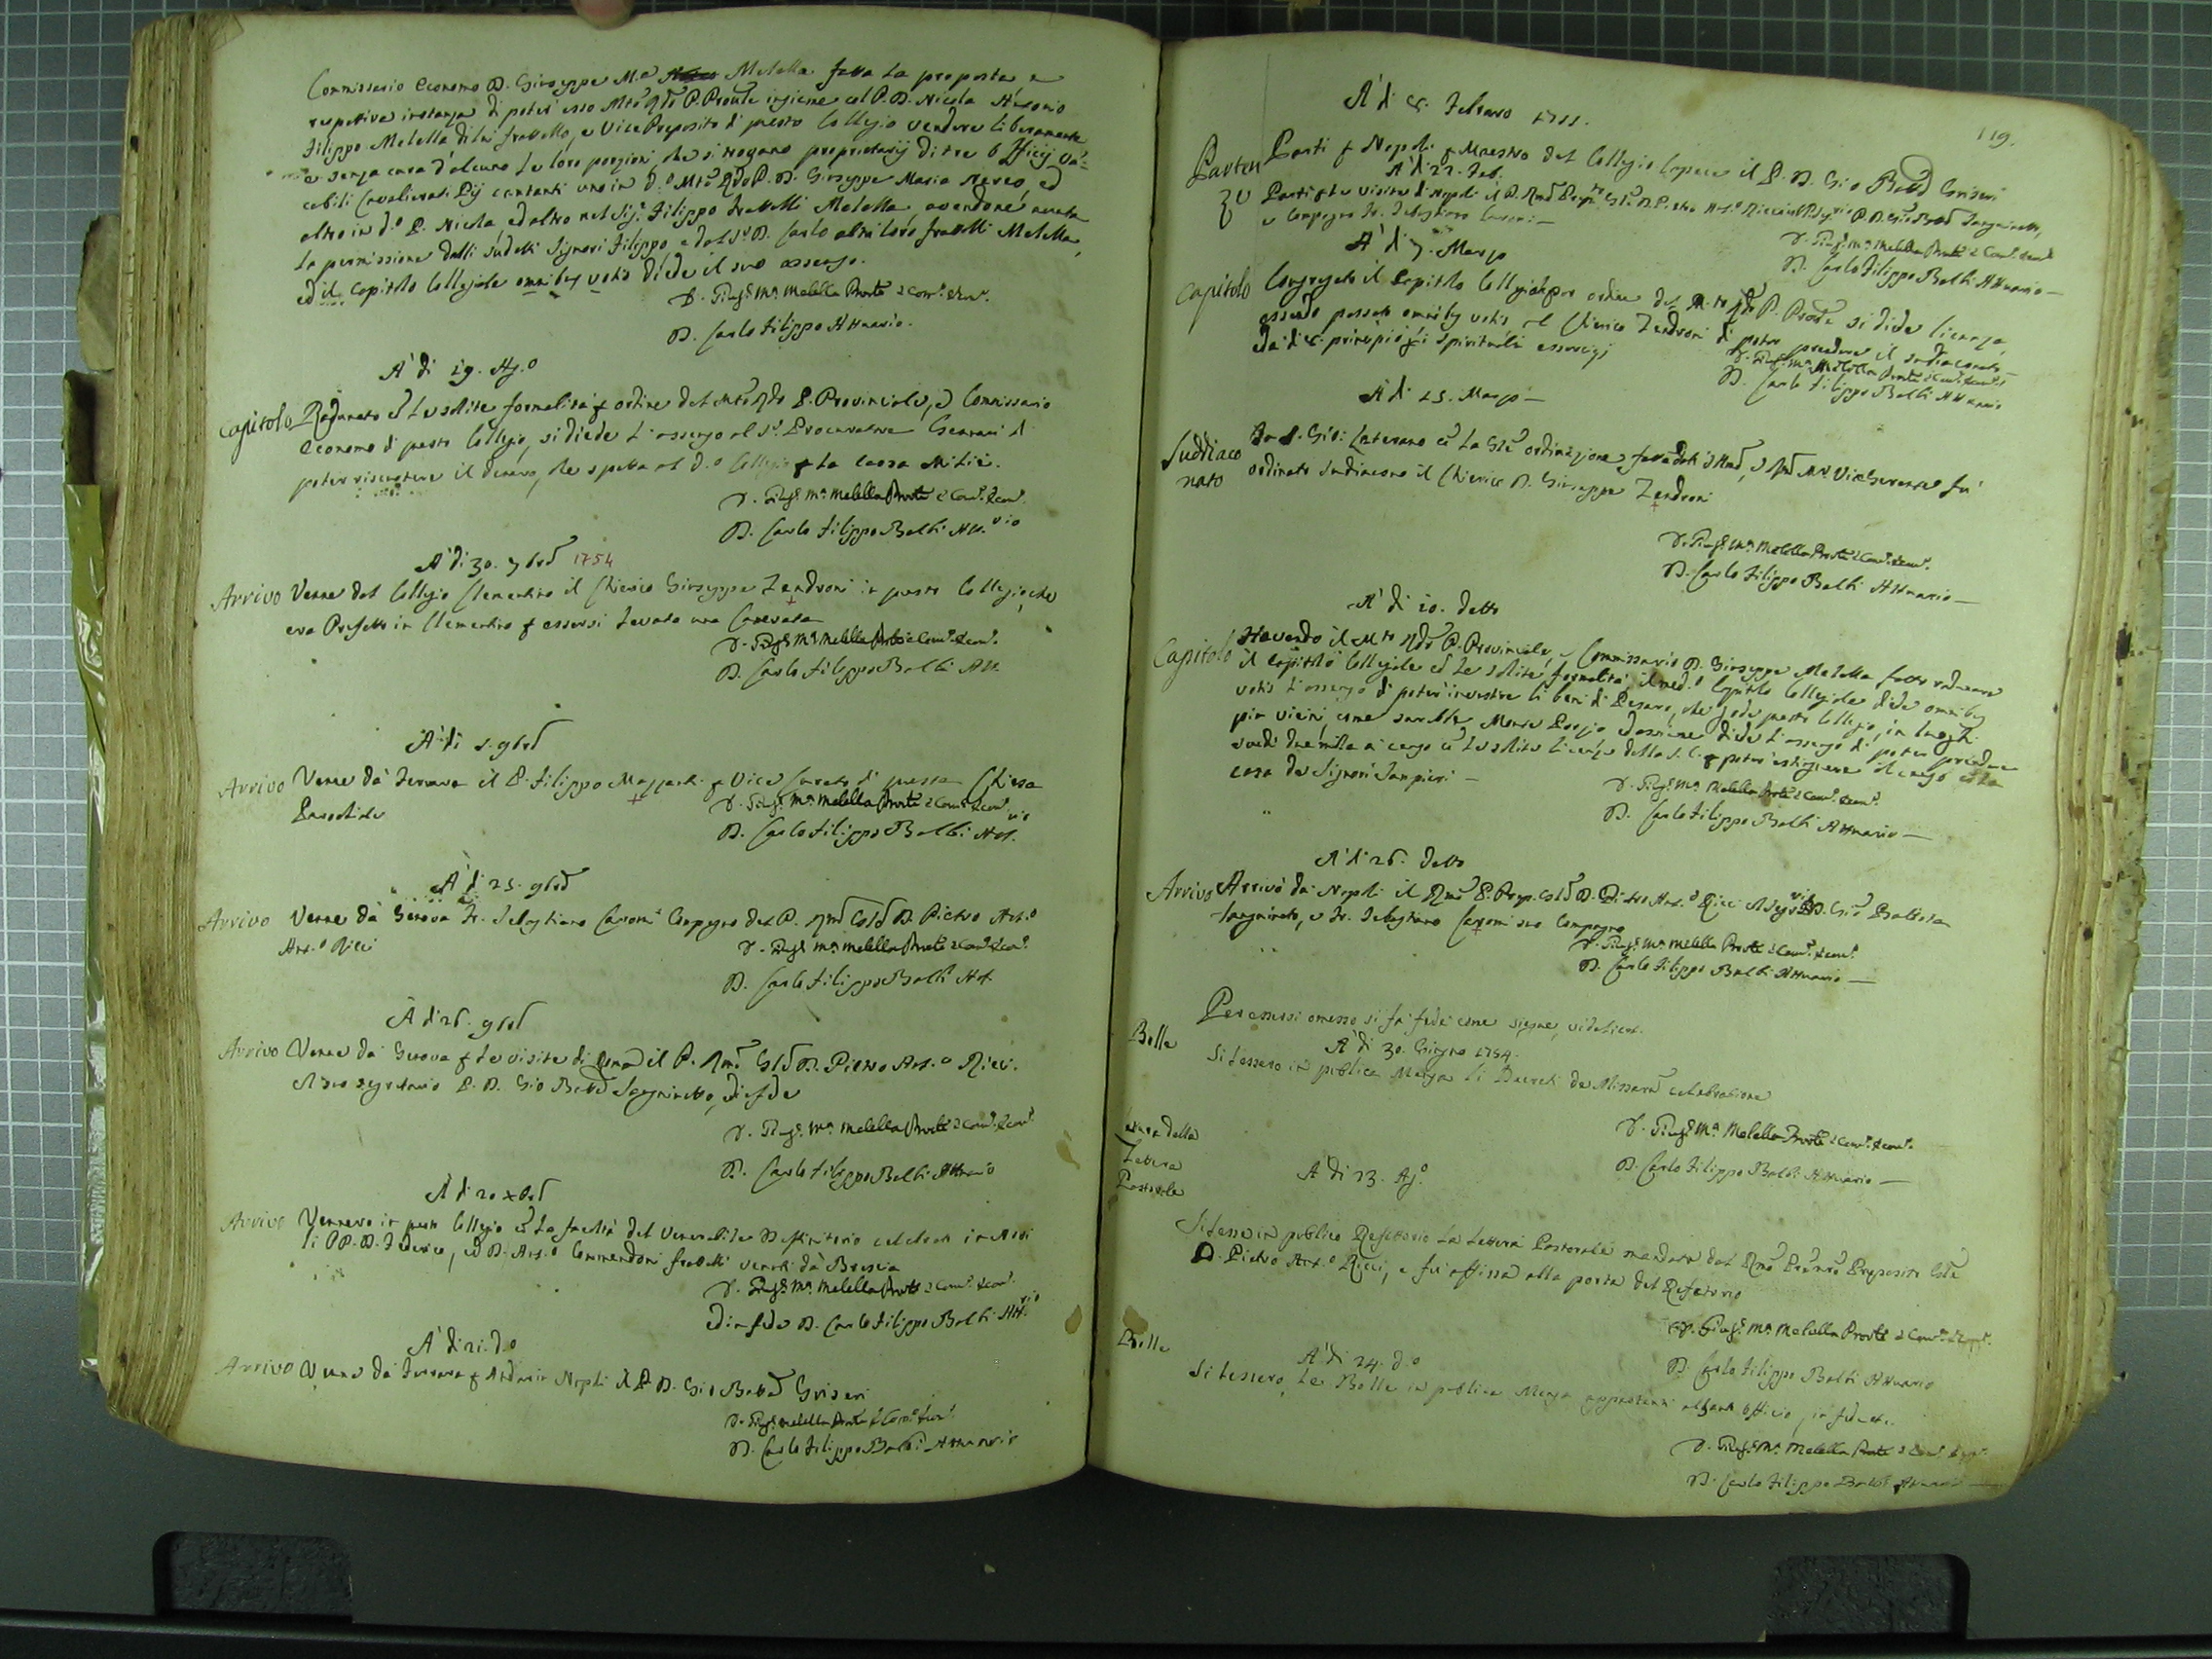 Commissario Economo D. Giuseppe M.a Melella fatta la proposta e
respettiva instanza di poter esso Mto Rdo P. Prov.le insieme col P. D. Nicola Antonio
Filippo Melella di lui fratello, e Vice Preposito di questo Collegio vendere liberamente
e senza cura d'alcuno le loro porzioni, che si trovano proprietarij di tre Officij Va-
cabili Cavalierati Pij cantanti uno in d.o Mto Rdo P. D. Giuseppe Maria
altro in d.o P. Nicola, ed altro nel Sig.r Filippo fratelli Melella, avendone avuta
la permissione dalli sudetti Signori Filippo e dal S.r D. Carlo altri loro fratelli Melella,
ed il Capitolo Collegiale omnibus votis diede il suo assenso.
D. Gius.e M.a Melella Prov.le e Com.o Econ.o
D. Carlo Filippo Attuario.
A' di 29. Ag.o
Capitolo Radunato co le solite formalità p ordine del Mto Rdo P. Provinciale, e Commissario
Economo di questo Collegio, si diede l'assenso al S.r Procuratore di
poter riscuotere il denaro, che spetta al d.o Collegio p la causa
D. Gius.e M.a Melella Prov.le e Com.o Econ.o
D. Carlo Filippo Balbi Att.rio
A' di 30. 7bre 1754
Arrivo Venne dal Collegio Clementino il Chierico Giuseppe Zendroni in questo Collegio, che
era Prefetto in Clementino p essersi levata una Camerata
D. Gius.e M.a Melella Prov.le e Com.o Econ.o
D. Carlo Filippo Balbi Att.
A' di 5. 9bre
Arrivo Venne da Ferrara il P. Filippo Mazzanti p Vice Curato di questa Chiesa
Parochiale
D. Gius.e M.a Melella Prov.le e Com.o Econ.o
D. Carlo Filippo Balbi Att.rio
A' di 25. 9bre
Arrivo Venne da Genova Fr. Sebastiano Caroni Compagno del P. Rmo Gnle D. Pietro Ant.o
Ant.o Ricci
D. Gius.e M.a Melella Prov.le e Com.o Econ.o
D. Carlo Filippo Balbi Att.
A' di 26. 9bre
Arrivo Venne da Genova p la visita di Roma il P. Rmo Gnle D. Pietro Ant.o Ricci.
Il suo segretario P. D. Gio Batta Sanguinetto, di
D. Gius.e M.a Melella Prov.le e Com.o Econ.o
D. Carlo Filippo Balbi Attuario
A' di 20 Xbre
Arrivo Vennero in questo Collegio co la facoltà del Venerabile Deffinitorio
li PP. D. Federico, ed D. Ant.o Commendoni fratelli venuti da Brescia
D. Gius.e M.a Melella Prov.le e Com.o Econ.o
ed in fede D. Carlo Filippo Balbi Att.rio
A' di 21. d.o
Arrivo Venne da Ferrara p Andar in Napoli il P. D. Gio Batta Griseri
D. Gius.e Melella Prov.le e Com.o Econ.o
D. Carlo Filippo Balbi Attuario
119.
A' di 5. Febraro 1755.
Parten
ze
Parti p Napoli p Maestro del Collegio Capece il P. D. Gio Batta Griseri
A' di 22. Feb.
Parti p la visita di Napoli il P. Rmo Prep.to Gnle D. Pietro Ant.o Ricci il Seg.rio P. D. Gio Batta Sanguinetto,
e Compagno Fr. Sebastiano Caroni.—
D. Gius.e M.a Melella Prov.le e Com.o Econ.o
D. Carlo Filippo Balbi Attuario—
A' di 7. Marzo
Capitolo Congregato il Capitolo Collegiale per ordine del M.to Rdo P. Prov.le si diede licenza,
essendo passato omnibus votis al Chierico Zendroni di poter prendere il sudiaconato—
e principiò li spirituali essercizj
D. Gius.e M.a Melella Prov.le e Com.o Econ.o
D. Carlo Filippo Balbi Attuario
A' di 15. Marzo—
Suddiaco
nato
In S. Gio: Laterano co la Gnle ordinazione fatta da Mr. Vice Gerente fu'
ordinato Sudiacono il Chierico D. Giuseppe Zendroni
D. Gius.e M.a Melella Prov.le e Com.o Econ.o
D. Carlo Filippo Balbi Attuario—
A' di 20. detto
Capitolo Havendo il Mto Rdo P. Provinciale, e Commissario D. Giuseppe Melella fatto radunare
il Capitolo Collegiale co le solite formalità, il med.o Capitolo Collegiale diede omnibus
votis l'assenso di poter investire li beni di Pesaro, che gode questo Collegio, in luoghi
più vicini, come sarebbe Monte Porzio, ed assieme diede l'assenso di poter prendere
scudi due mila a censo co la solita licenza della S. C. p poter estinguere il censo co la
casa de Signori Sampieri—
D. Gius.e M.a Melella Prov.le e Com.o Econ.o
D. Carlo Filippo Balbi Attuario—
A' di 26. detto
Arrivo Arrivò da Napoli il Rmo P. Prep. Gnle D. Pietro Ant.o Ricci il Seg.rio D. Gio Battista
Sanguineto, e Fr. Sebastiano Caroni suo Compagno
D. Gius.e M.a Melella Prov.le e Com.o Econ.o
D. Carlo Filippo Balbi Attuario—
Per essersi omesso si fa fede come siegue, videlicet.
Bolle
A' di 30. Giugno 1754.
Si lessero in publica Mensa li Decreti de Missarum celebratione
D. Gius.e M.a Melella Prov.le e Com.o Econ.o
D. Carlo Filippo Balbi Attuario—
della
Lettera
Pastorale
A' di 23. Ag.o
Si lesse in publico Refettorio la lettera Pastorale mandata dal Rmo Padre Preposito Gnle
D. Pietro Ant.o Ricci, e fu affissa alla porta del Refetorio
D. Gius.e M.a Melella Prov.le e Com.o Econ.o
D. Carlo Filippo Balbi Attuario
Bolle
A' di 24. d.o
Si lessero le Bolle in publica Mensa appartenenti al Officio, in fede etc.
D. Gius.e M.a Melella Prov.le e Com.o Econ.o
D. Carlo Filippo Balbi Attuario—